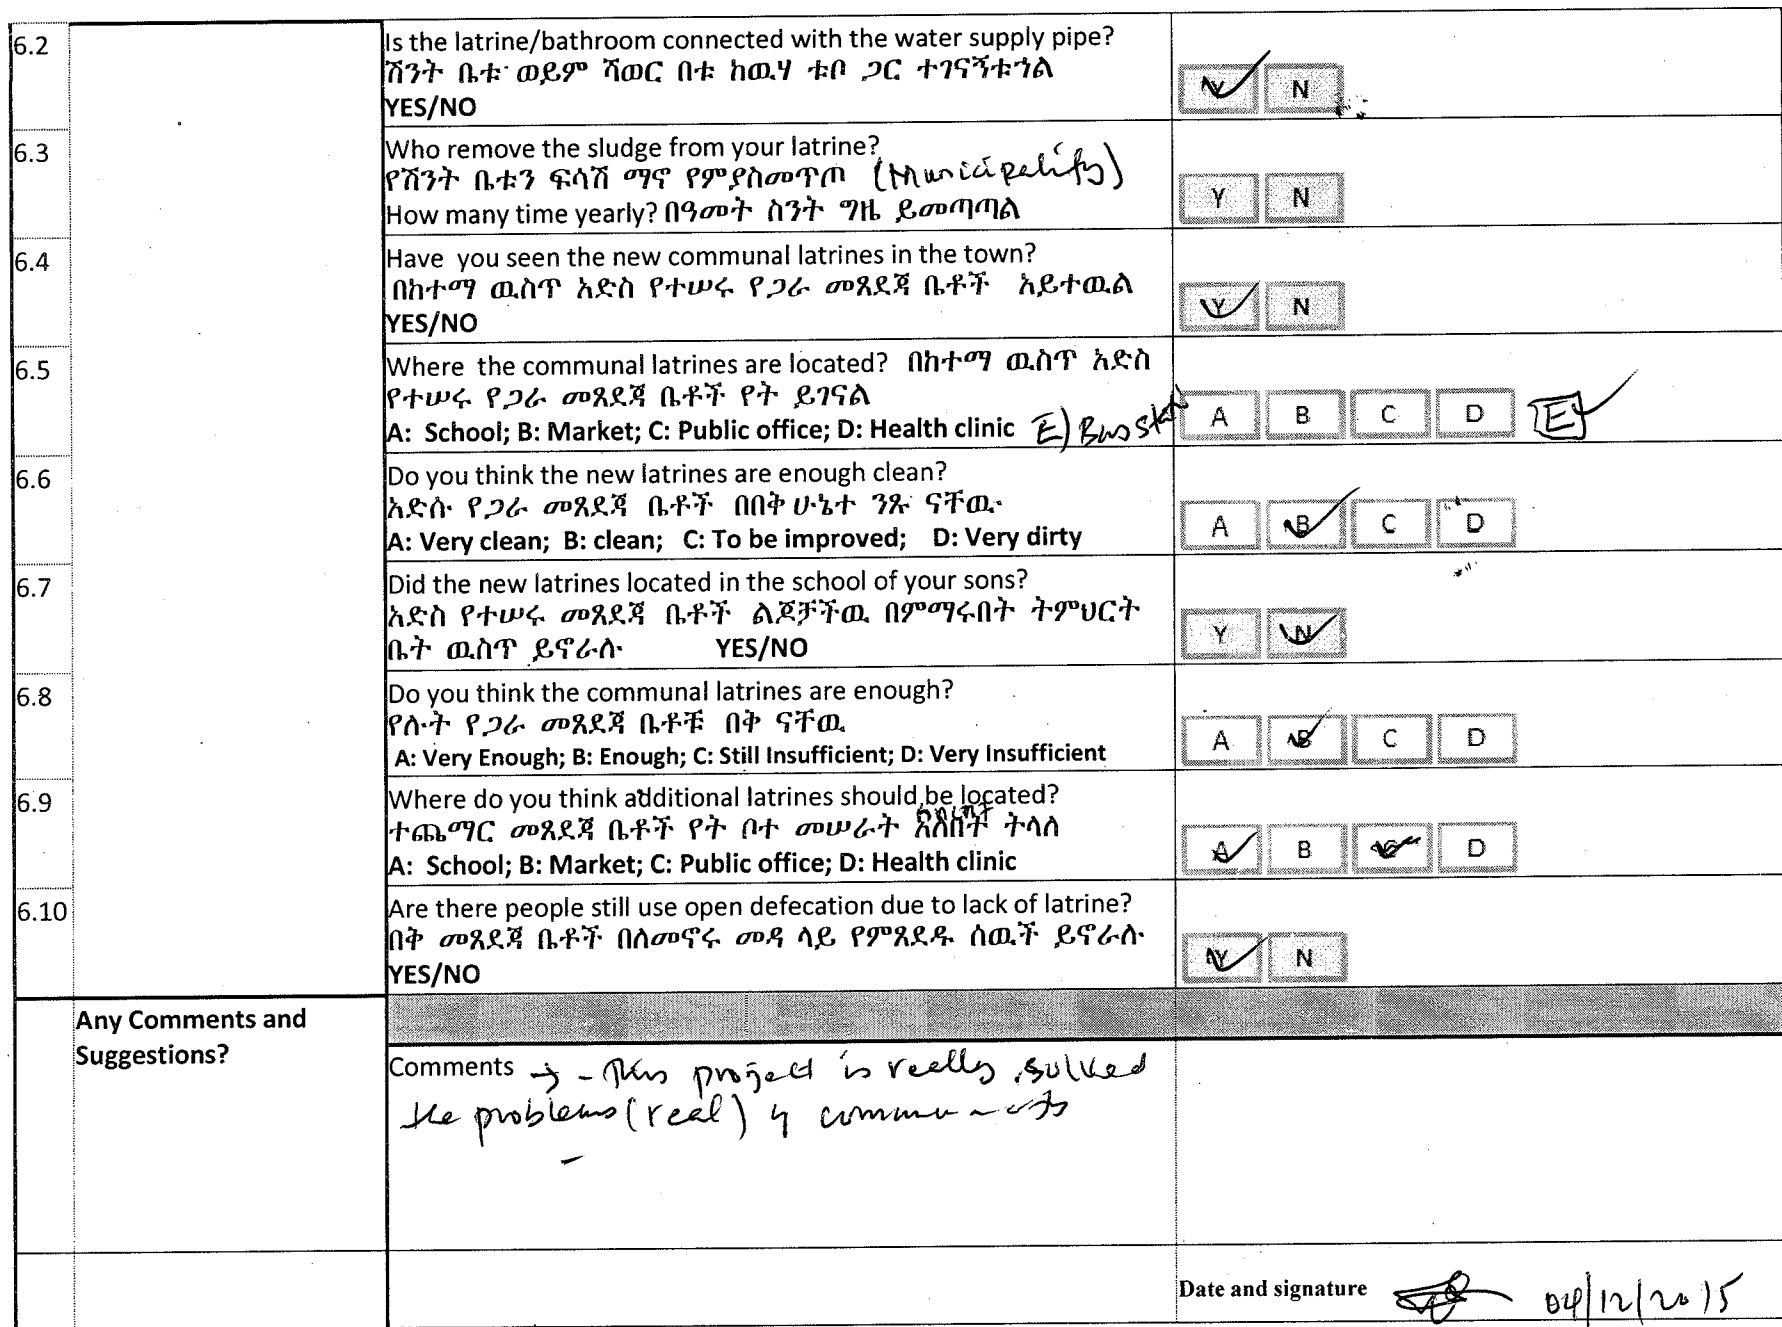 6.2
Is the latrine/bathroom connected with the water supply pipe?
ሽንት ቤቱ ወይም ሻወር በቱ ከዉሃ ቱቦ ጋር ተገናኝቱኀል
YES/NO
Y N
6.3
Who remove the sludge from your latrine?
የሽንት ቤቱን ፍሳሽ ማኖ የምያስመጥጦ (Municipality)
How many time yearly? በዓመት ስንት ግዜ ይመጣጣል
Y N
6.4
Have you seen the new communal latrines in the town?
በከተማ ዉስጥ አድስ የተሠሩ የጋራ መጸደጃ ቤቶች አይተዉል
YES/NO
Y N
6.5
Where the communal latrines are located? በከተማ ዉስጥ አድስ
የተሠሩ የጋራ መጸደጃ ቤቶች የት ይገናል
A: School; B: Market; C: Public office; D: Health clinic E) Bus
A B C D E
6.6
Do you think the new latrines are enough clean?
አድሱ የጋራ መጸደጃ ቤቶች በበቅ ሁኔተ ንጹ ናቸዉ
A: Very clean; B: clean; C: To be improved; D: Very dirty
A B C D
6.7
Did the new latrines located in the school of your sons?
አድስ የተሠሩ መጸደጃ ቤቶች ልጆቻችዉ በምማሩበት ትምህርት
ቤት ዉስጥ ይኖራሉ YES/NO
Y N
6.8
Do you think the communal latrines are enough?
የሉት የጋራ መጸደጃ ቤቶቹ በቅ ናቸዉ
A: Very Enough; B: Enough; C: Still Insufficient; D: Very Insufficient
A B C D
6.9
Where do you think additional latrines should be located?
ተጨማር መጸደጃ ቤቶች የት ቦተ መሠራት አለበት ትላለ
A: School; B: Market; C: Public office; D: Health clinic
A B C D
6.10
Are there people still use open defecation due to lack of latrine?
በቅ መጸደጃ ቤቶች በለመኖሩ መዳ ላይ የምጸደዱ ሰዉች ይኖራሉ
YES/NO
Y N
Any Comments and
Suggestions?
Comments → - This project is really solved
the problems (real)
Date and signature 04/12/2015